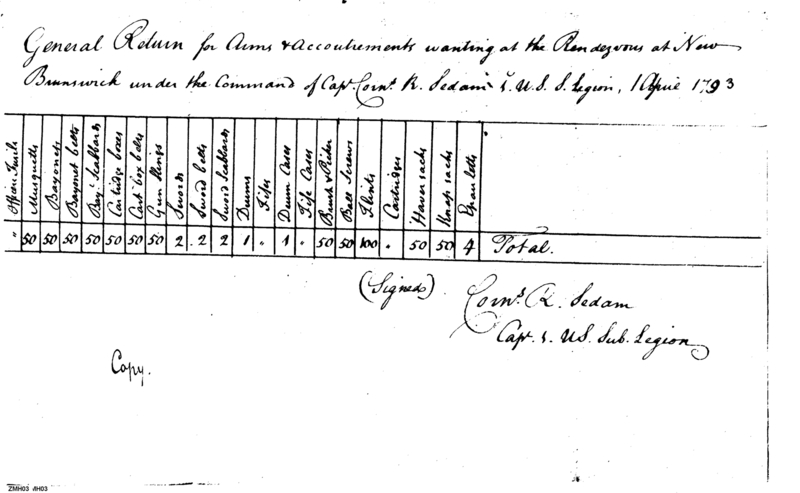 General Return for Arms & Accoutrements wanting at the Rendezvous at New
Brunswick under the Command of Capt. Corns. R. Sedam 1. U.S. S. Legion, 1 April 1793
Officers Fusils
Musquetts
Bayonets
Bayonet belts
Bayt. Scabbards
Cartridge boxes
Cart. box belts
Gun Slings
Swords
Sword belts
Sword Scabbards
Drums
Fifes
Drum Cases
Fife Cases
Brush & Picker
Ball Screws
Flints
Cartridges
Haversacks
Knapsacks
Epauletts
" 50 50 50 50 50 50 50 2 2 2 1 " 1 " 50 50 100 " 50 50 4 Total.
(Signed) Corns. R. Sedam
Capt. 1. US. Sub. Legion
Copy.
ZMH03 AH03